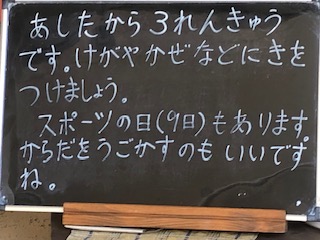 あしたから3れんきゅう
です。けがやかぜなどにきを
つけましょう。
スポーツの日(9日)もあります。
からだをうごかすのもいいです
ね。